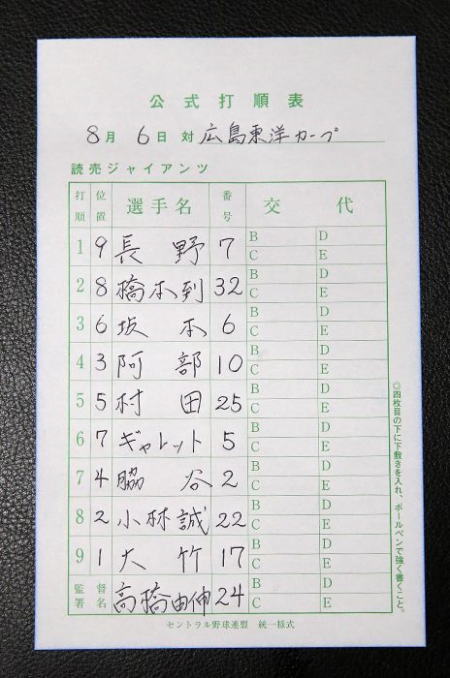 公式打順表
8月 6日 対 広島東洋カープ
読売ジャイアンツ
打順 位置 選手名 番号 交代
1 9 長野 7 B D C E
2 8 橋本到 32 B D C E
3 6 坂本 6 B D C E
4 3 阿部 10 B D C E
5 5 村田 25 B D C E
6 7 ギャレット 5 B D C E
7 4 脇谷 2 B D C E
8 2 小林誠 22 B D C E
9 1 大竹 17 B D C E
監督署名 高橋由伸 24 B D C E
セントラル野球連盟 統一様式
◎四枚目の下に下敷きを入れ、ボールペンで強く書くこと。